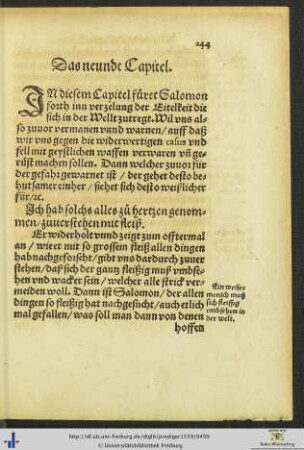 244
Das neunde Capitel.
IN diesem Capitel füret Salomon
forth inn verzelung der Eitelkeit die
sich in der Wellt zutregt. Wil vns al-
so zuuor vermanen vnnd warnen / auff daß
wir vns gegen die widerwertigen casus vnd
fell mit geystlichen waffen verwaren vñ ge-
rüst machen sollen. Dann welcher zuuor für
der gefahr gewarnet ist / der gehet desto be
hutsamer einher / siehet sich desto weißlicher
für / ꝛc.
Ich hab solchs alles zů hertzen genom-
men / zuuerstehen mit fleiß.
Er widerholt vnnd zeigt zum offtermal
an / wie er mit so grossem fleiß allen dingen
hab nachgeforscht / gibt vns dardurch zuuer
stehen / daß sich der gantz fleißig muß vmbse-
hen vnd wacker sein / welcher alle strick ver-
meiden woll. Dann ist Salomon / der allen
dingen so fleißig hat nachgesucht / auch etlich
mal gefallen / was soll man dann von denen
hoffen
Ein weiser
mensch muß
sich fleißig
vmbsehen in
der welt.
http://dl.ub.uni-freiburg.de/diglit/prediger1559/0499
© Universitätsbibliothek Freiburg
Baden-Württemberg